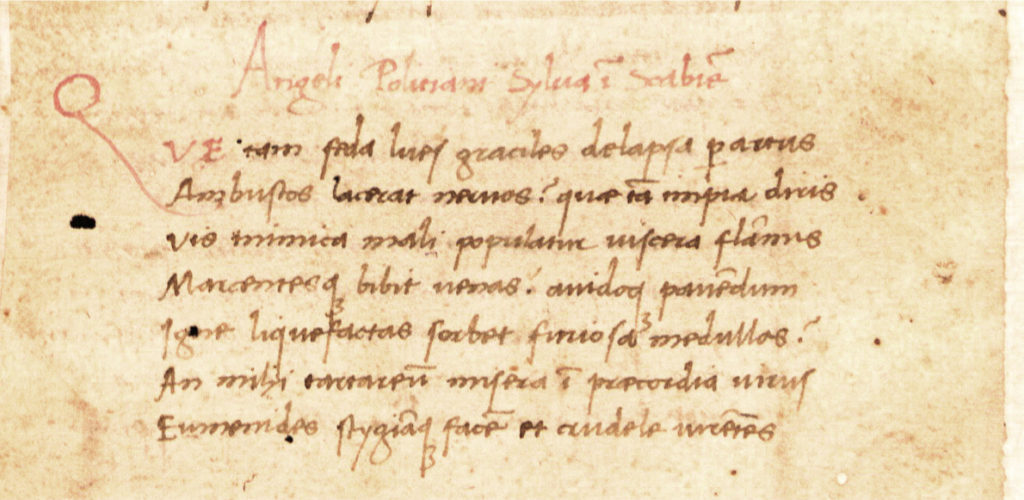 Angeli Politiani Sylua ī Scabiē
QVE tam feda lues graciles delapsa ꝑ artus
Ambustos lacerat neruos? quæ tā impia diris
Vis inimica mali populatur uiscera flāmis
Marcentesqꝫ bibit uenas? auidoqꝫ pauēdum
Igne liquefactas sorbet furiosa medullas?
An mihi tartareū misera ī præcordia uirus
Eumenides stygiāqꝫ facē et crudele uirētes